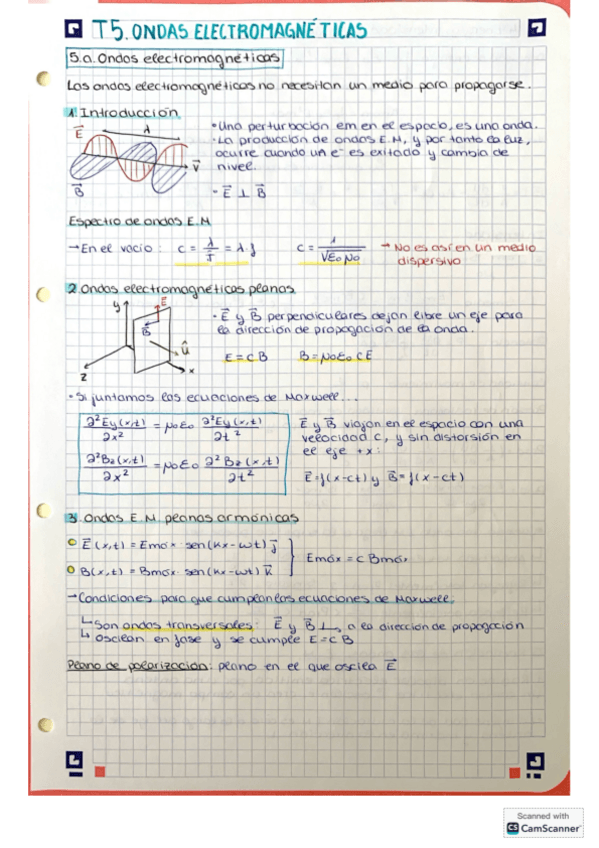 T5. ONDAS ELECTROMAGNÉTICAS
5.a. Ondas electromagnéticas
Las ondas electromagnéticas no necesitan un medio para propagarse.
1. Introducción
E⃗ λ
V⃗
B⃗
• Una perturbación em en el espacio, es una onda.
• La producción de ondas E.M, y por tanto la luz,
ocurre cuando un e⁻ es exitado y cambia de
nivel.
• E⃗ ⊥ B⃗
Espectro de ondas E.M
→ En el vacío: c = λ/T = λ·f c = 1/√ε₀μ₀ → No es así en un medio
dispersivo
2. Ondas electromagnéticas planas
y E⃗
B⃗
û
x
z
• E⃗ y B⃗ perpendiculares dejan libre un eje para
la dirección de propagación de la onda.
E = cB B = μ₀ε₀cE
• Si juntamos las ecuaciones de Maxwell...
∂²Ey(x,t)/∂x² = μ₀ε₀ ∂²Ey(x,t)/∂t²
∂²Bz(x,t)/∂x² = μ₀ε₀ ∂²Bz(x,t)/∂t²
E⃗ y B⃗ viajan en el espacio con una
velocidad c, y sin distorsión en
el eje +x:
E⃗=f(x-ct) y B⃗=f(x-ct)
3. Ondas E.M. planas armónicas
E⃗(x,t) = Emáx· sen(kx-wt) j⃗
B(x,t) = Bmáx· sen(kx-wt) k⃗
Emáx = cBmáx
→ Condiciones para que cumplan las ecuaciones de Maxwell:
↳ Son ondas transversales: E⃗ y B⃗ ⊥, a la dirección de propagación
↳ Oscilan en fase y se cumple E=cB
Plano de polarización: plano en el que oscila E⃗
Scanned with
CS CamScanner